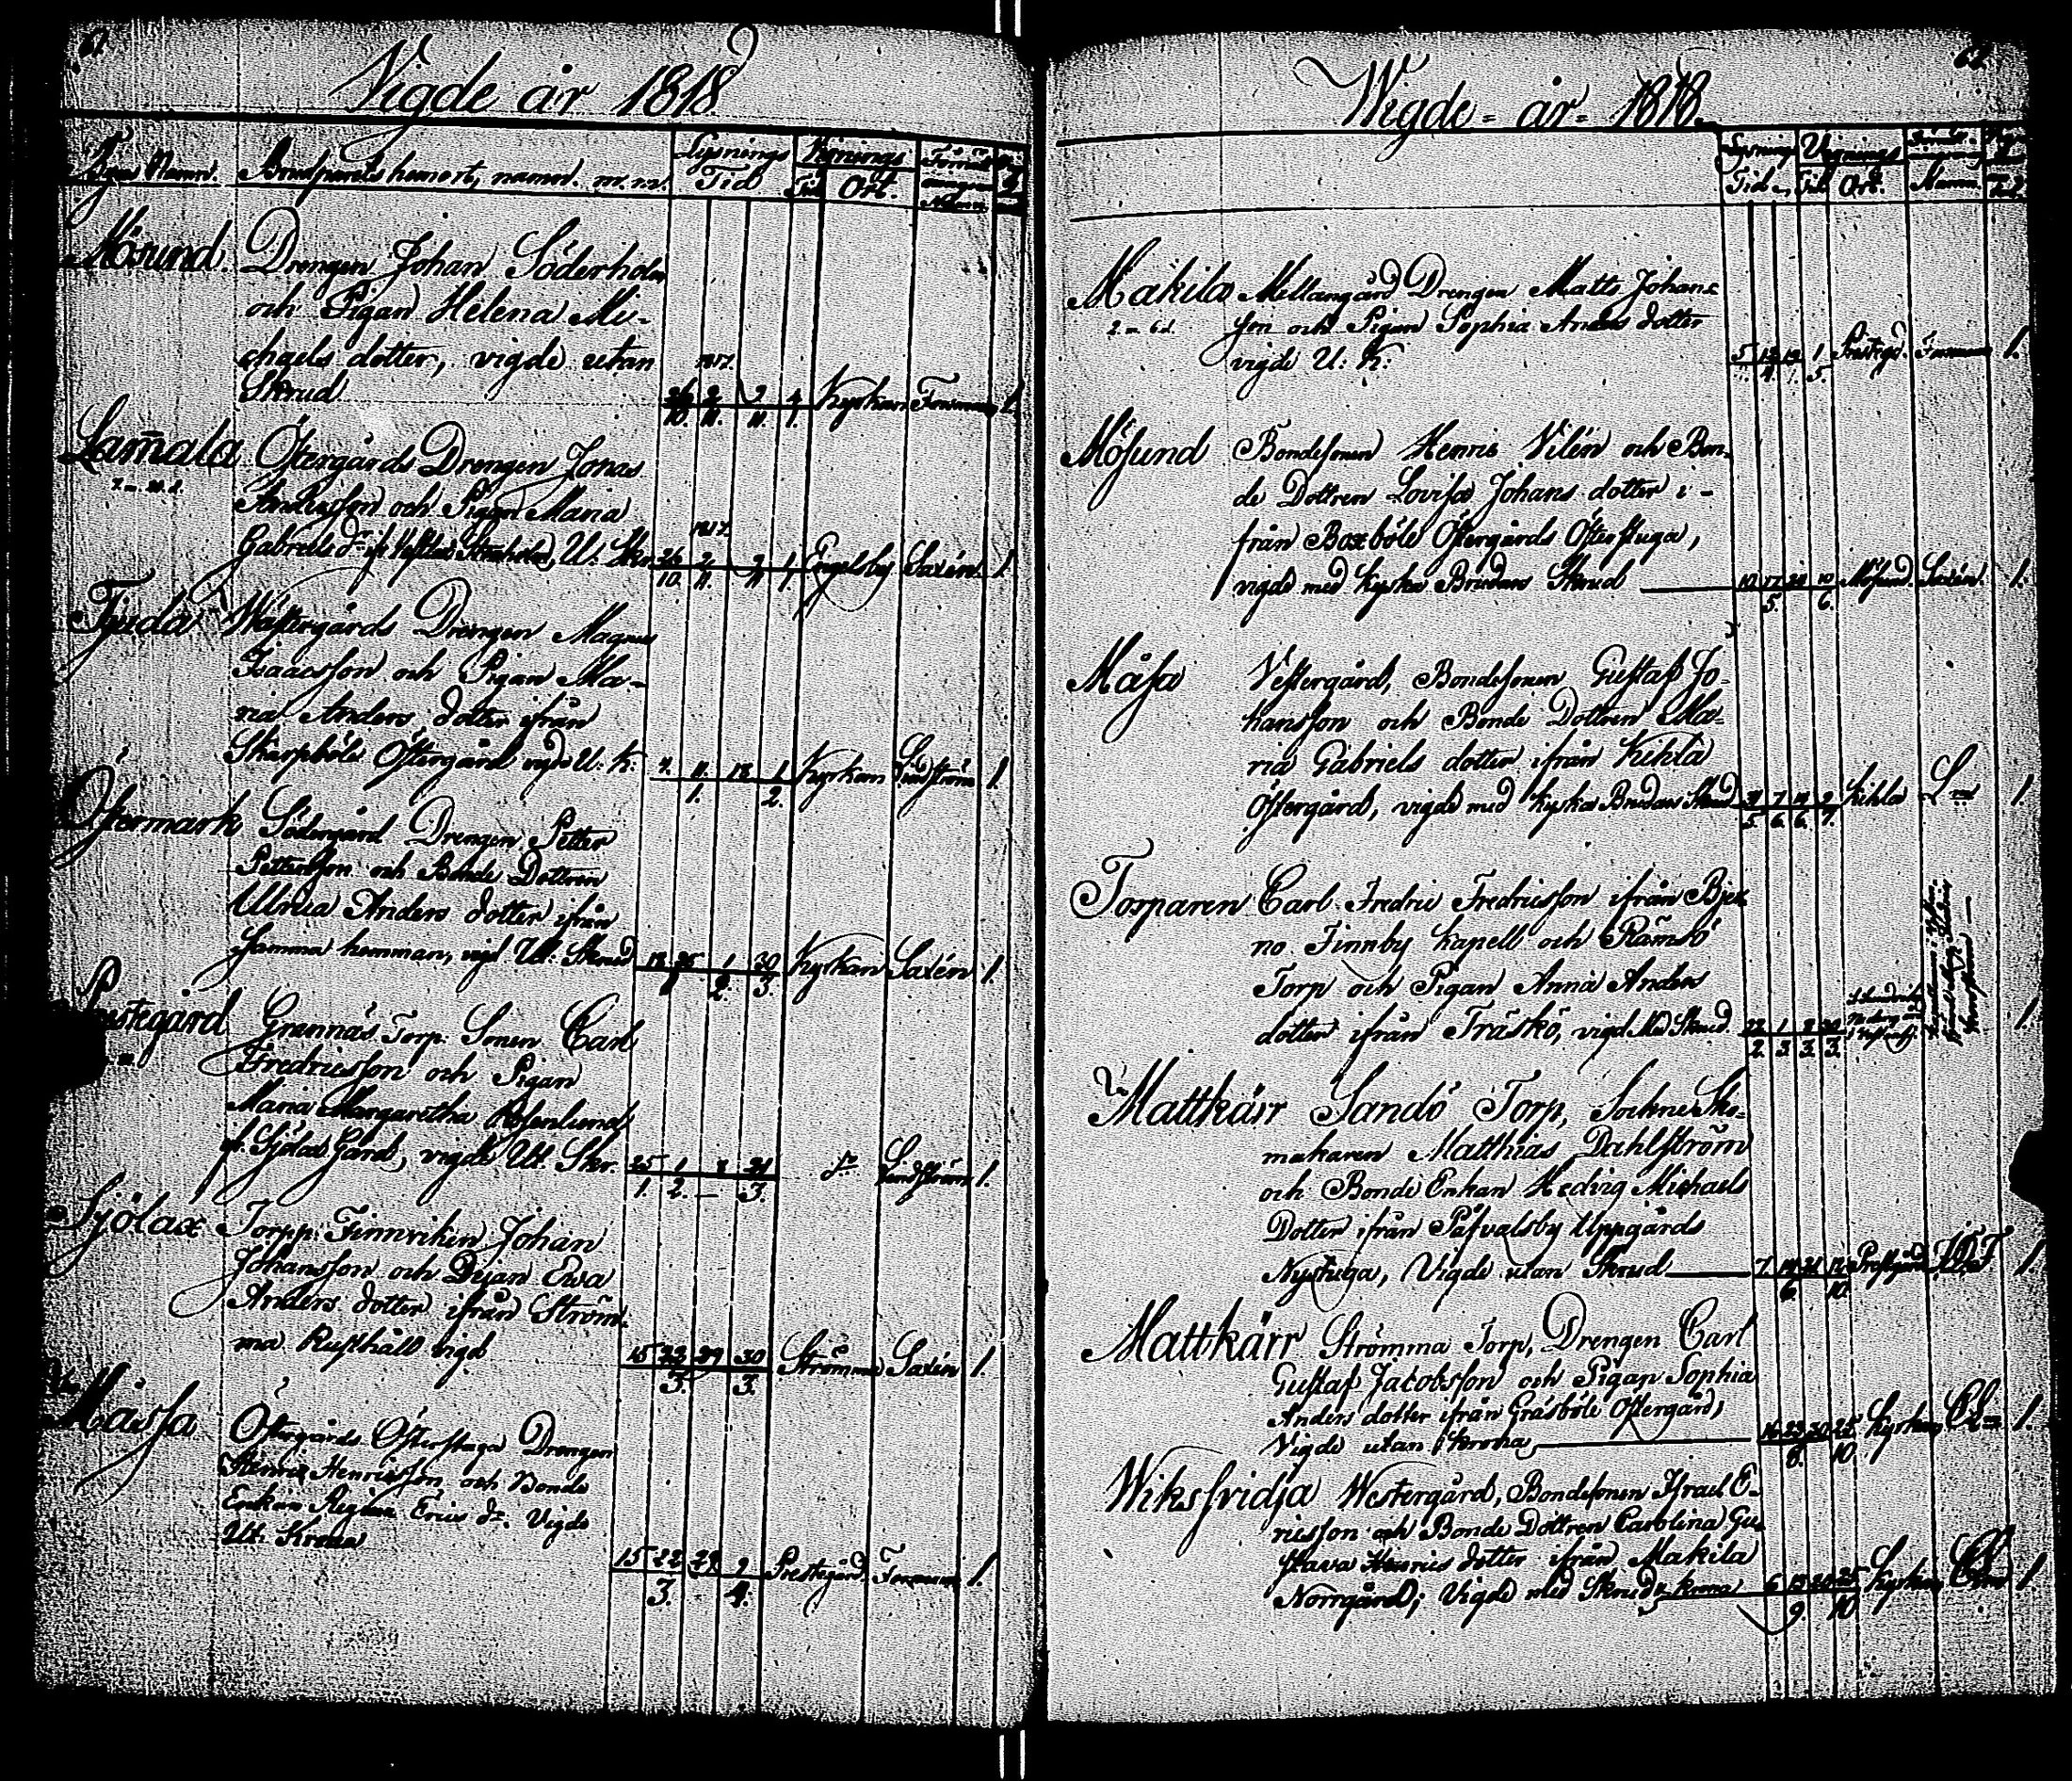 Vigde år 1818
Byars Namn. Brudparets hemort, namn. m.m. Lysnings Tid Vignings Tid Ort. Namn
Mösund. Drengen Johan Söderholm
och Pigan Helena Mi-
chaels dotter, vigde utan
1817.
Skrud 26/10. 2/11. 4/1. Kyrkan Forsman 1.
Lam̄ala Östergårds Drengen Jonas
Andersson och Pigan Maria
1817.
Gabriels dr Ut. Skr. 26/10. 2/11. Engelsby Saxén. 1.
Wästergårds Drengen Magnus
Isaacsson och Pigan Ma-
ria Anders dotter ifrån
Skarpböle Östergård vigd U. K. 4. 11. 18/1. 1/2. Kyrkan Lindström 1.
Östermark Södergård Drengen Petter
Pettersson och Bonde Dottren
Ulrica Anders dotter ifrån
samma hemman, vigd Ut. Skrud 18 25/1 1/2. 30/3. Kyrkan Saxén 1.
Prestegård Grennäs Torp. Sonen Carl
Fredricsson och Pigan
Maria Margaretha Rosenlund
fr. Sjölax Gård, vigde Ut. Skr. 25/1. 1/2. 8 31/3. do Lindström 1.
Sjölax Torpp. Finnviken Johan
Johansson och Pigan Ewa
Anders dotter ifrån Ström-
ma Rusthåll vigd 15 22/3. 29 30/3. Strömma Saxén 1.
Måssa Östergårds Österstuga Drengen
Henric Henricsson och Bonde
Enkan Regina Erics dr. Vigde
Ut. Krona 15 22/3. 29 2/4. Prestegård Forsman 1.
Wigde år 1818.
Lysnings Tid Vignings Tid Ort. Namn.
Makila Mellangård Drengen Matts Johans
son och Pigan Sophia Anders dotter
vigde U: K: 5 12/4. 19 1/5. Prästegd. Forsman 1.
Mösund Bondesonen Henric Vilén och Bon-
de Dottren Lovisa Johans dotter i-
från Boxböle Östergårds Österstuga,
vigde med Kyska Brudars Skrud 10 17/5. 24 10/6. Mösund. Saxén. 1.
Måsa Vestergård, Bondesonen Gustaf Jo-
hansson och Bonde Dottren Ma-
ria Gabriels dotter ifrån Kihla
Östergård, vigde med Kyska Brudars Skrud 31/5. 7/6. 14/6. 2/7. Kihla L-m 1.
Torparen Carl Fredric Fredricsson ifrån Bjer
no Finnby Kapell och Rämsö
Torp och Pigan Anna Anders
dotter ifrån Träskö, vigd Med Skrud. 22/2. 1/3. 8/3. 30/3. 1.
Mattkärr Sandö Torp, Sockne Sko-
makaren Matthias Dahlström
och Bonde Enkan Hedvig Michaels
Dotter ifrån Påfvalsby Uppgårds
Nystuga, Vigde utan Skrud 7 14/6. 21 12/10. Prestgård 1.
Mattkärr Strömma Torp, Drengen Carl
Gustaf Jacobsson och Pigan Sophia
Anders dotter ifrån Gräsböle Östergård,
Vigde utan Krona, 16 23/8. 30 25/10. Kyrkan 1.
Wiksfvidja Westergård, Bondesonen Israel E-
ricsson och Bonde Dottren Carolina Gu-
stava Henrics dotter ifrån Makila
Norrgård; Vigde med Skrud & krona 6 13/9. 20 25/10 Kyrkan 1.